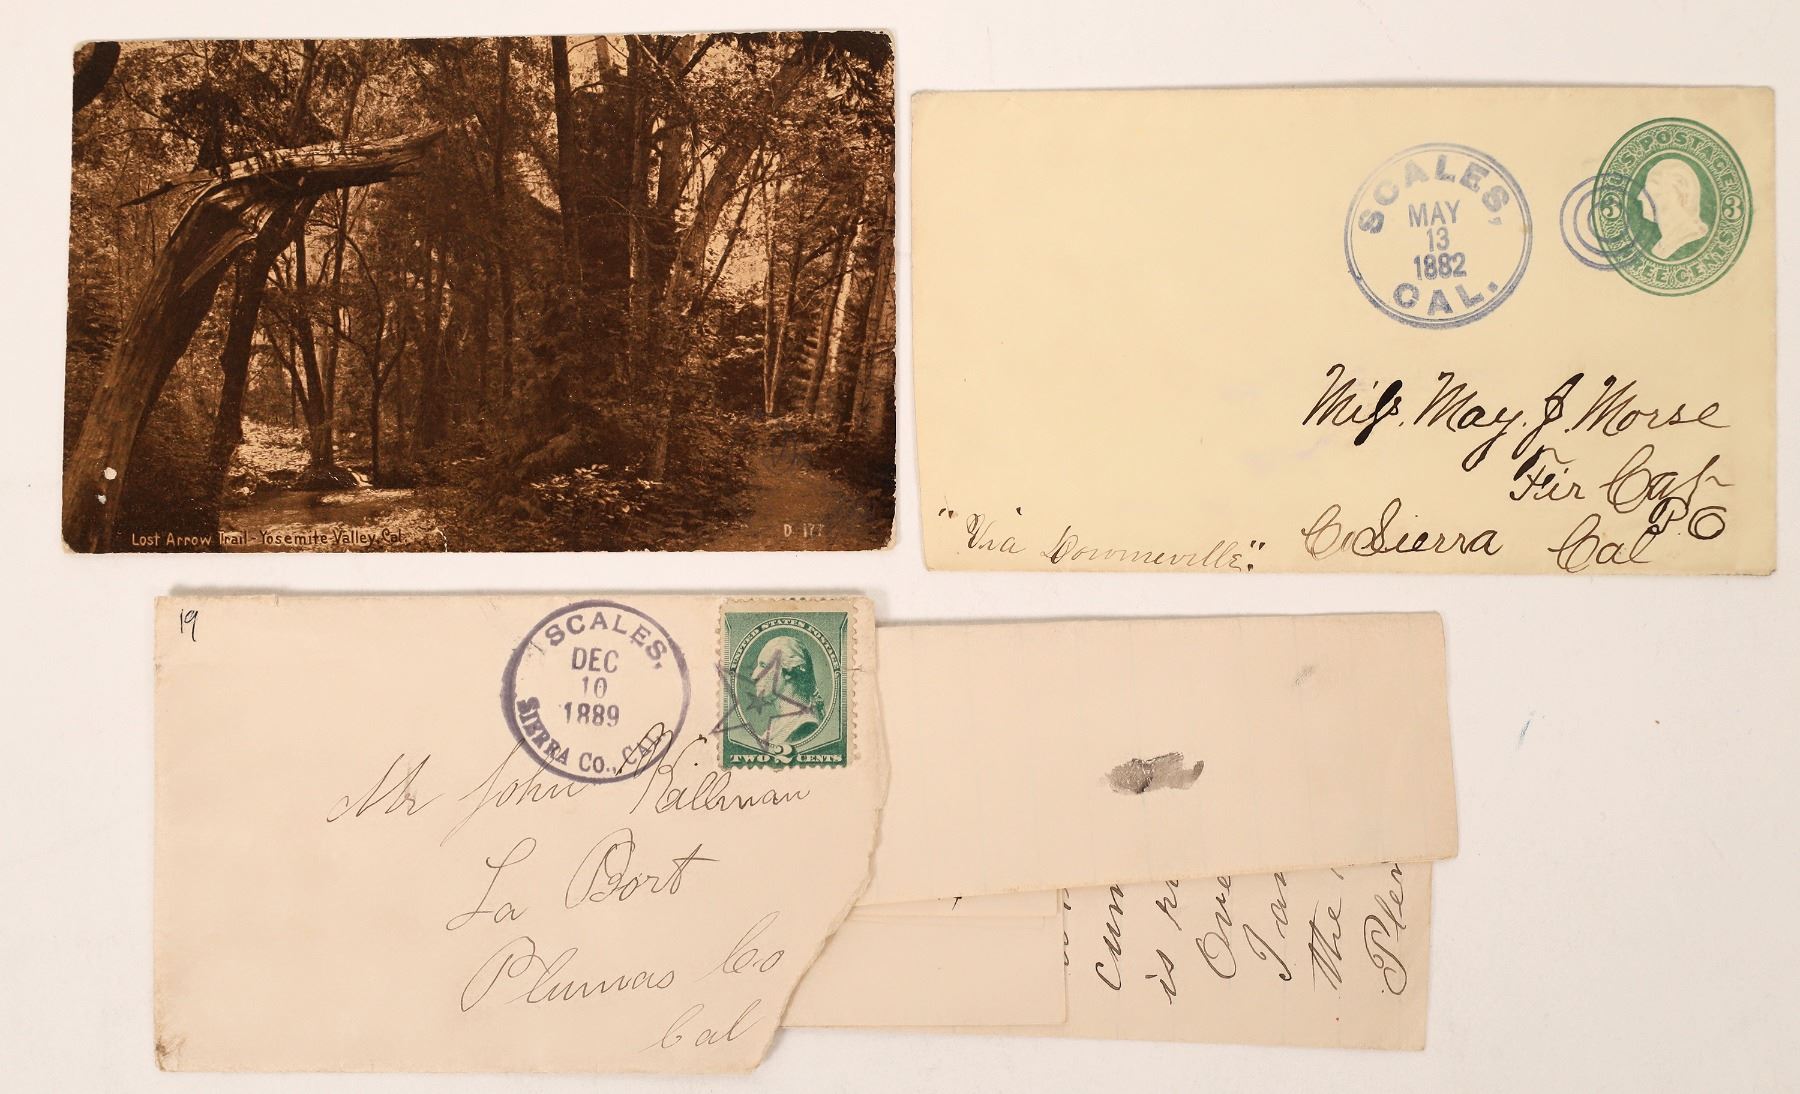 Lost Arrow Trail - Yosemite Valley, Cal.
D 177
SCALES,
MAY
13
1882
CAL.
U.S. POSTAGE
3 3
THREE CENTS
Miss. May. J. Morse
Fir Cap
P O
Co Sierra Cal
"Via Downieville".
19
SCALES,
DEC
10
1889
SIERRA CO., CAL.
UNITED STATES POSTAGE
TWO 2 CENTS
Mr John Killman
La Port
Plumas Co
Cal
cum
is
Ove
I am
the
Plen